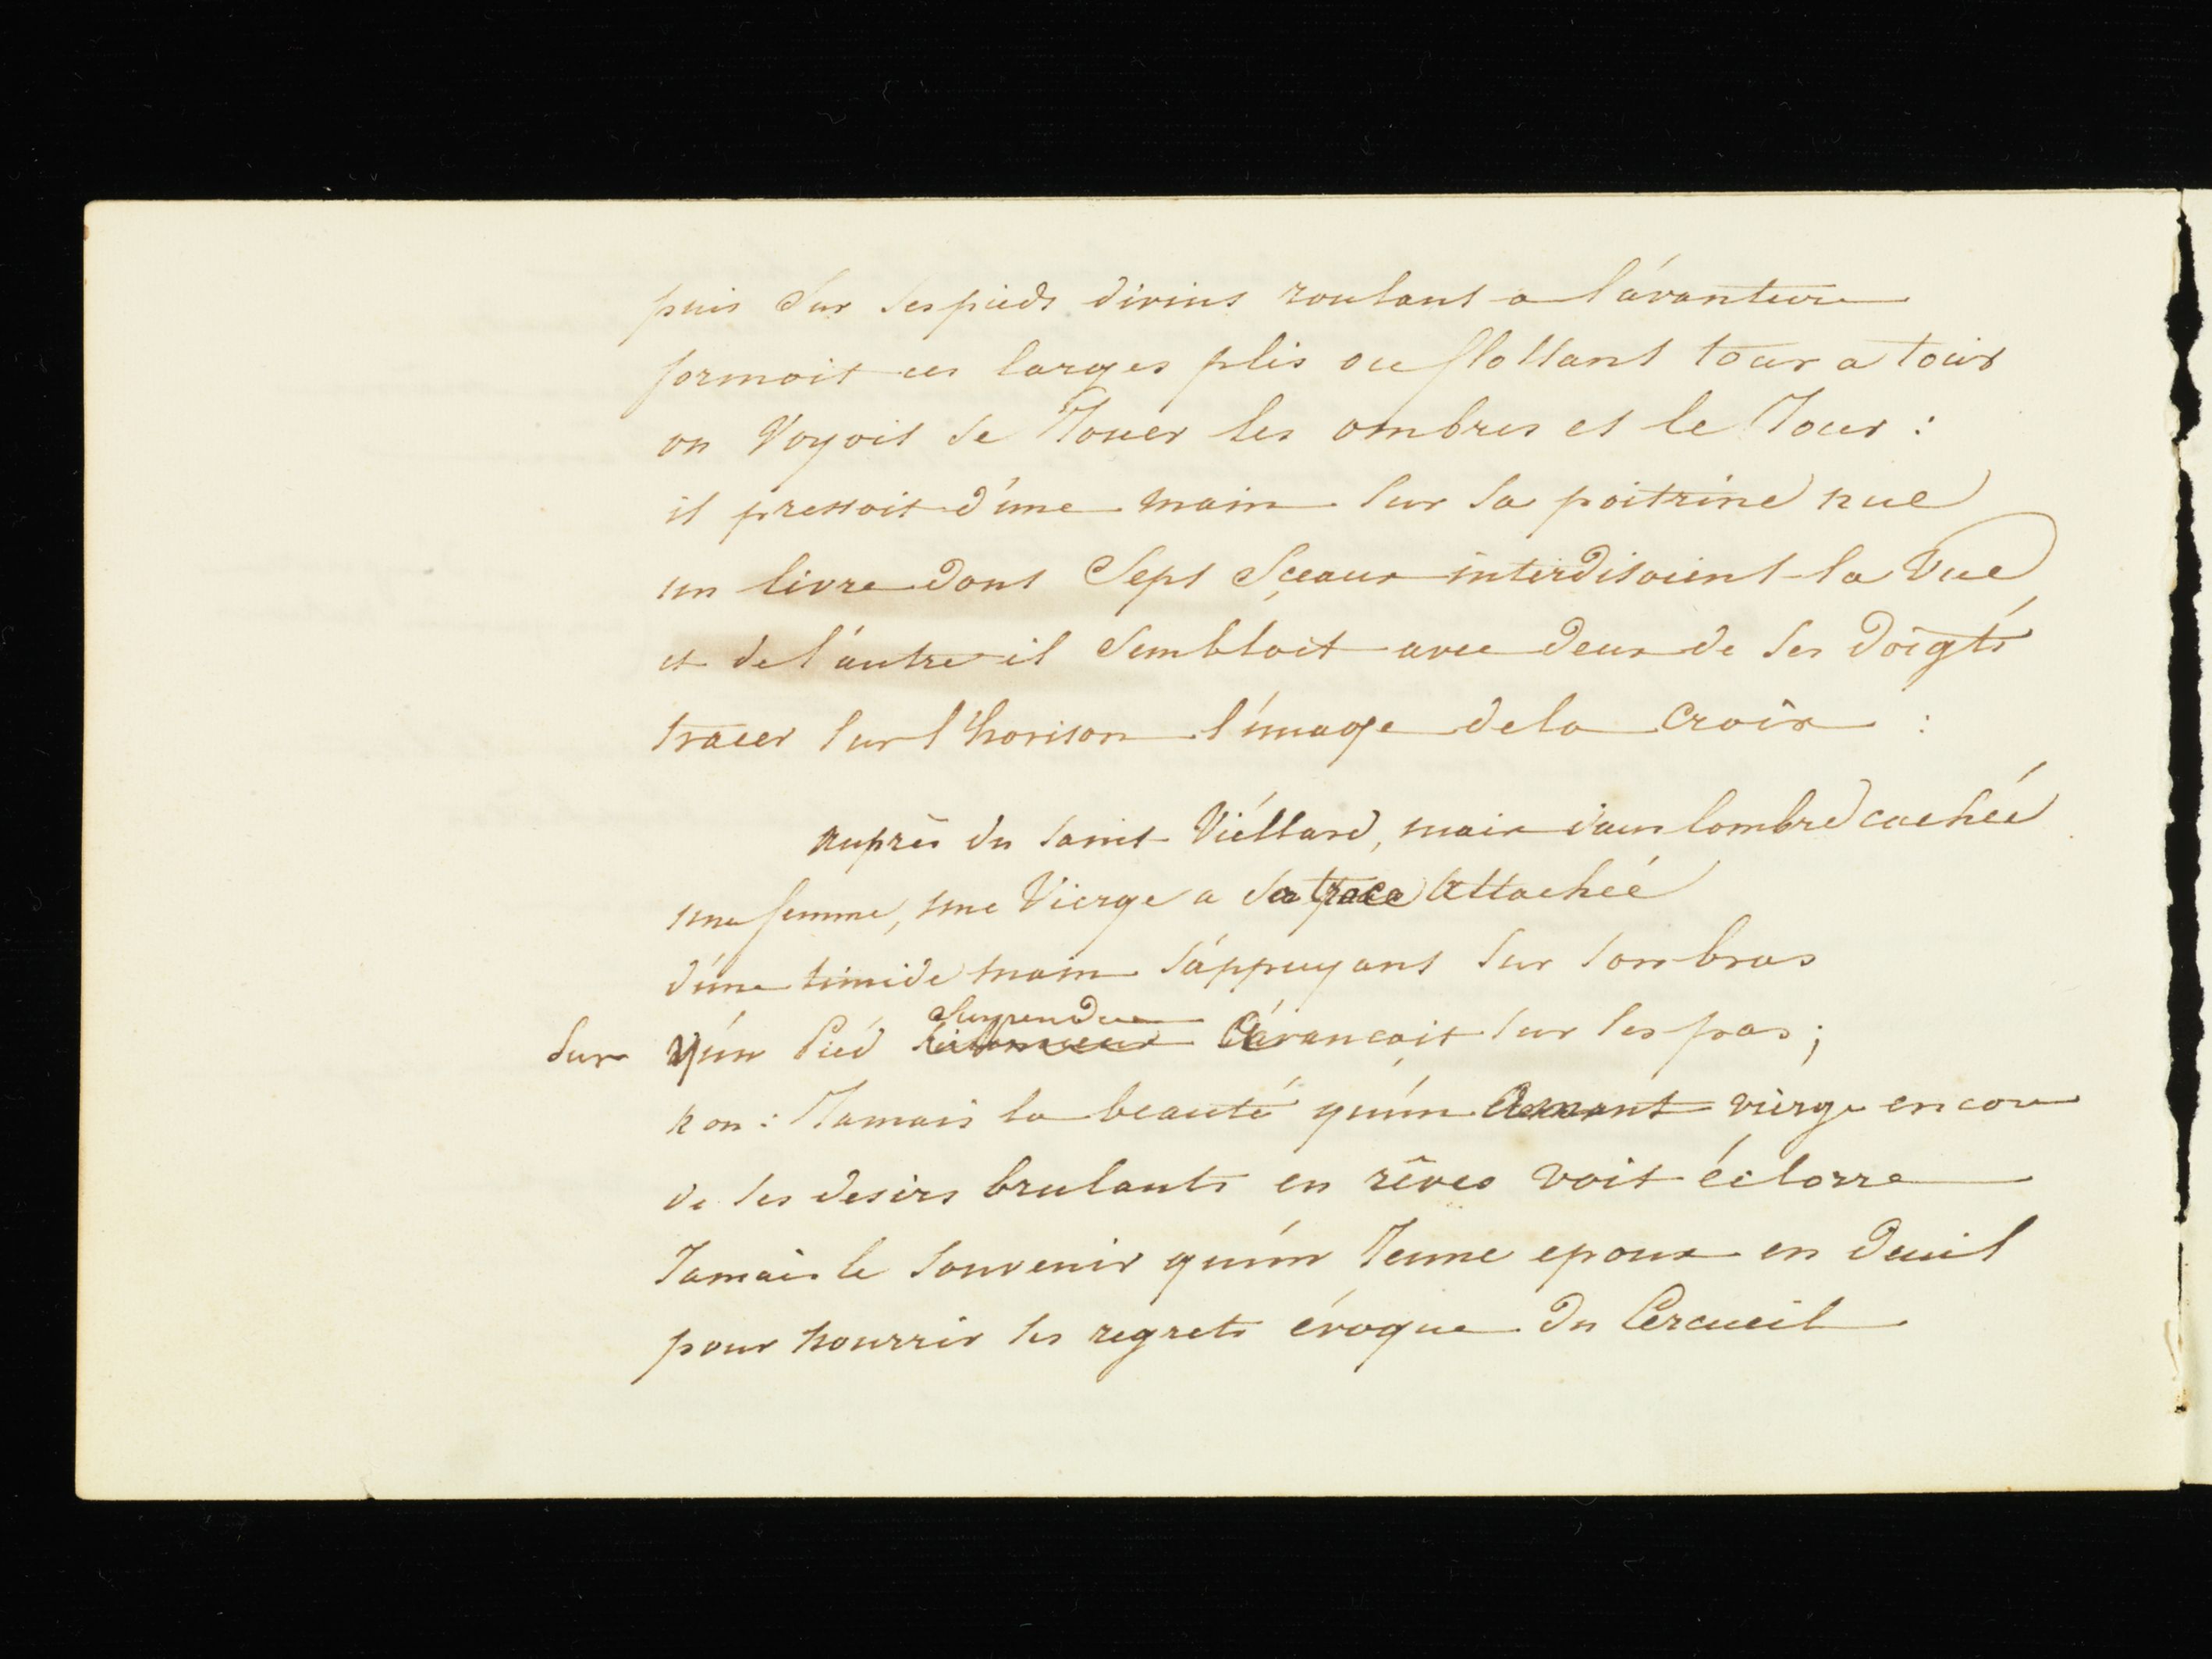 puis sur ses pieds divins roulant a l'avanture
formoit ces larges plis ou flottant tour a tour
on Voyoit se Jouer les ombres et le Jour :
il pressoit d'une main sur sa poitrine nue
un livre dont Sept Sceaux interdisoient la Vue
et de l'autre il Sembloit avec deux de ses doigts
tracer sur l'horison l'image de la Croix :
Auprès du saint Viéllard, mais dans lombre cachée
une femme, une Vierge a sa trace attachée
d'une timide main s'appuyant sur son bras
suspendue
Sur qu'un Pied s'avancait sur ses pas ;
non : Jamais la beauté qu'un Amant vierge encore
de ses desirs brulants en rêves voit éclorre
Jamais le souvenir qu'un Jeune epoux en deuil
pour nourrir ses regrets évoque du Cercueil